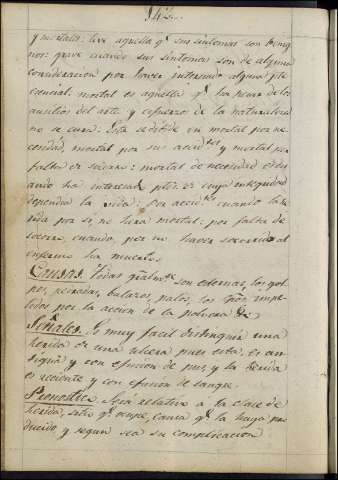 142..
y mortales: leve aquella q.e sus sintomas son benig
nos: grave cuando sus sintomas son de alguna
consideracion por haver interesado alguna pte
esencial: mortal es aquella q.e ha pesar de los
auxilios del arte y esfuerzo de la naturaleza
no se cura: Esta se divide en mortal por ne
cesidad, mortal por sus accid.tes y mortal por
falta de socorro: mortal de necesidad es cu
ando ha interesado ptes. en cuya integridad
dependia la vida: Por accid.tes cuando la he
rida por si, no hera mortal: por falta de
socorro, cuando, por no haver socorrido al
enfermo ha muerto.
Causas. Todas gralm.te son externas, los gol
pes, pedradas, balazos, palos, los impe
lidos por la accion de la polvora &.
Señales. Es muy facil distinguir una
herida de una ulcera pues esta, es an
tigua y con efusion de pus, y la herida
es reciente y con efusion de sangre.
Pronostico. Será relativo a la clase de
herida, sitio q.e ocupe, causa q.e la haya pro
ducido y segun sea su complicacion